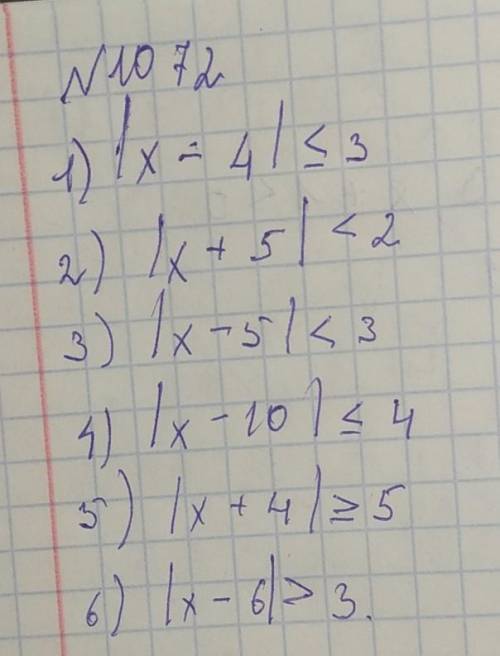 №1072
1) |x - 4| ≤ 3
2) |x + 5| < 2
3) |x - 5| < 3
4) |x - 10| ≤ 4
5) |x + 4| ≥ 5
6) |x - 6| > 3.